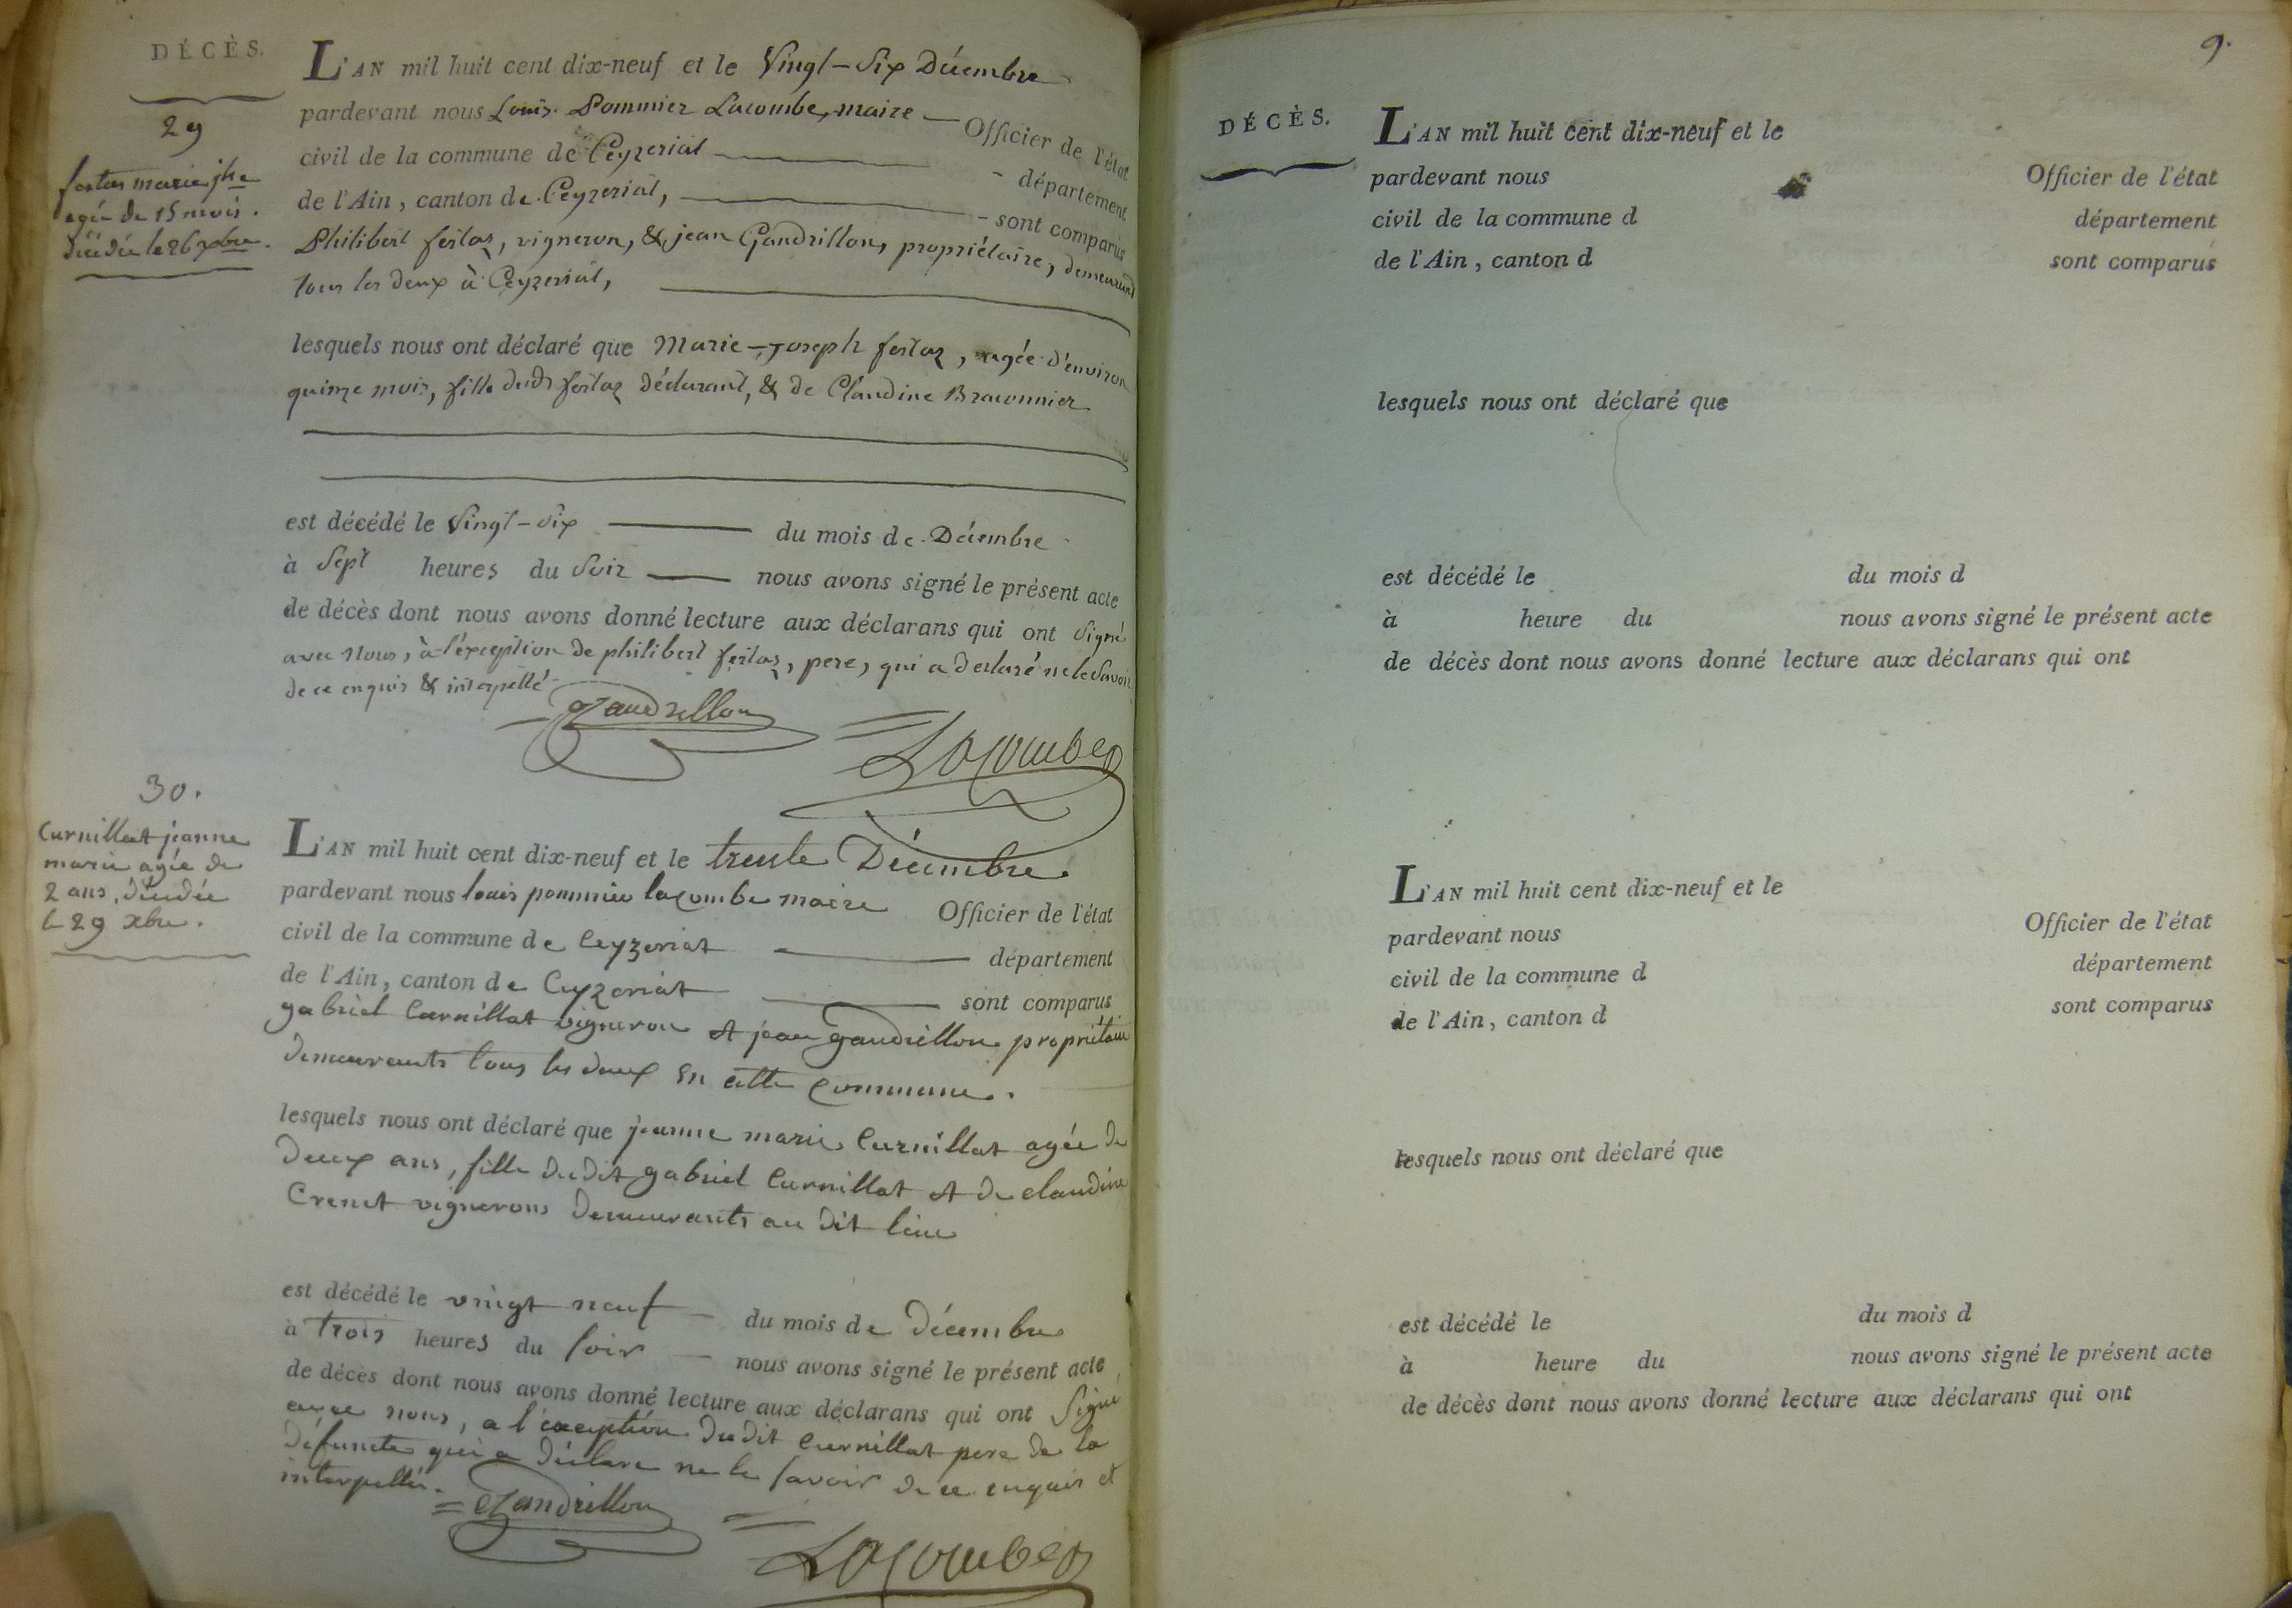 DÉCÈS.
29
fertas marie jhe
agée de 15 mois.
décédée le 26 xbre.
L'AN mil huit cent dix-neuf et le Vingt-Six Décembre
pardevant nous Louis Pommier Lacombe, maire Officier de l'état
civil de la commune de Ceyzeriat département
de l'Ain, canton de Ceyzeriat, sont comparus
Philibert fertas, vigneron, & jean Gandrillon, propriétaire, demeurant
tous les deux à Ceyzeriat,
lesquels nous ont déclaré que Marie-joseph fertas, agée d'environ
quinze mois, fille dudt fertas déclarant, & de Claudine Braconnier
est décédé le Vingt-Six du mois de Décembre
à Sept heures du Soir nous avons signé le présent acte
de décès dont nous avons donné lecture aux déclarans qui ont signé
avec nous, à l'exception de philibert fertas, pere, qui a declaré ne le Savoir
de ce enquis & interpellé
Gandrillon
Lacombe
30.
Curnillat jeanne
marie agée de
2 ans, décédée
le 29 xbre.
L'AN mil huit cent dix-neuf et le trente Décembre
pardevant nous louis pommier lacombe maire Officier de l'état
civil de la commune de Ceyzeriat département
de l'Ain, canton de Ceyzeriat sont comparus
gabriel Curnillat vigneron et jean gandrillon propriétaire
demeurants tous les deux en cette commune.
lesquels nous ont déclaré que jeanne marie Curnillat agée de
deux ans, fille dudit gabriel Curnillat et de claudine
Crenet vignerons demeurants au dit lieu
est décédé le vingt neuf du mois de décembre
à trois heures du soir nous avons signé le présent acte
de décès dont nous avons donné lecture aux déclarans qui ont signé
avec nous, a l'exception dudit Curnillat pere de la
défunte qui a déclaré ne le savoir de ce enquis et
interpellé.
Gandrillon
Lacombe
9.
DÉCÈS.
L'AN mil huit cent dix-neuf et le
pardevant nous Officier de l'état
civil de la commune d département
de l'Ain, canton d sont comparus
lesquels nous ont déclaré que
est décédé le du mois d
à heure du nous avons signé le présent acte
de décès dont nous avons donné lecture aux déclarans qui ont
L'AN mil huit cent dix-neuf et le
pardevant nous Officier de l'état
civil de la commune d département
de l'Ain, canton d sont comparus
lesquels nous ont déclaré que
est décédé le du mois d
à heure du nous avons signé le présent acte
de décès dont nous avons donné lecture aux déclarans qui ont